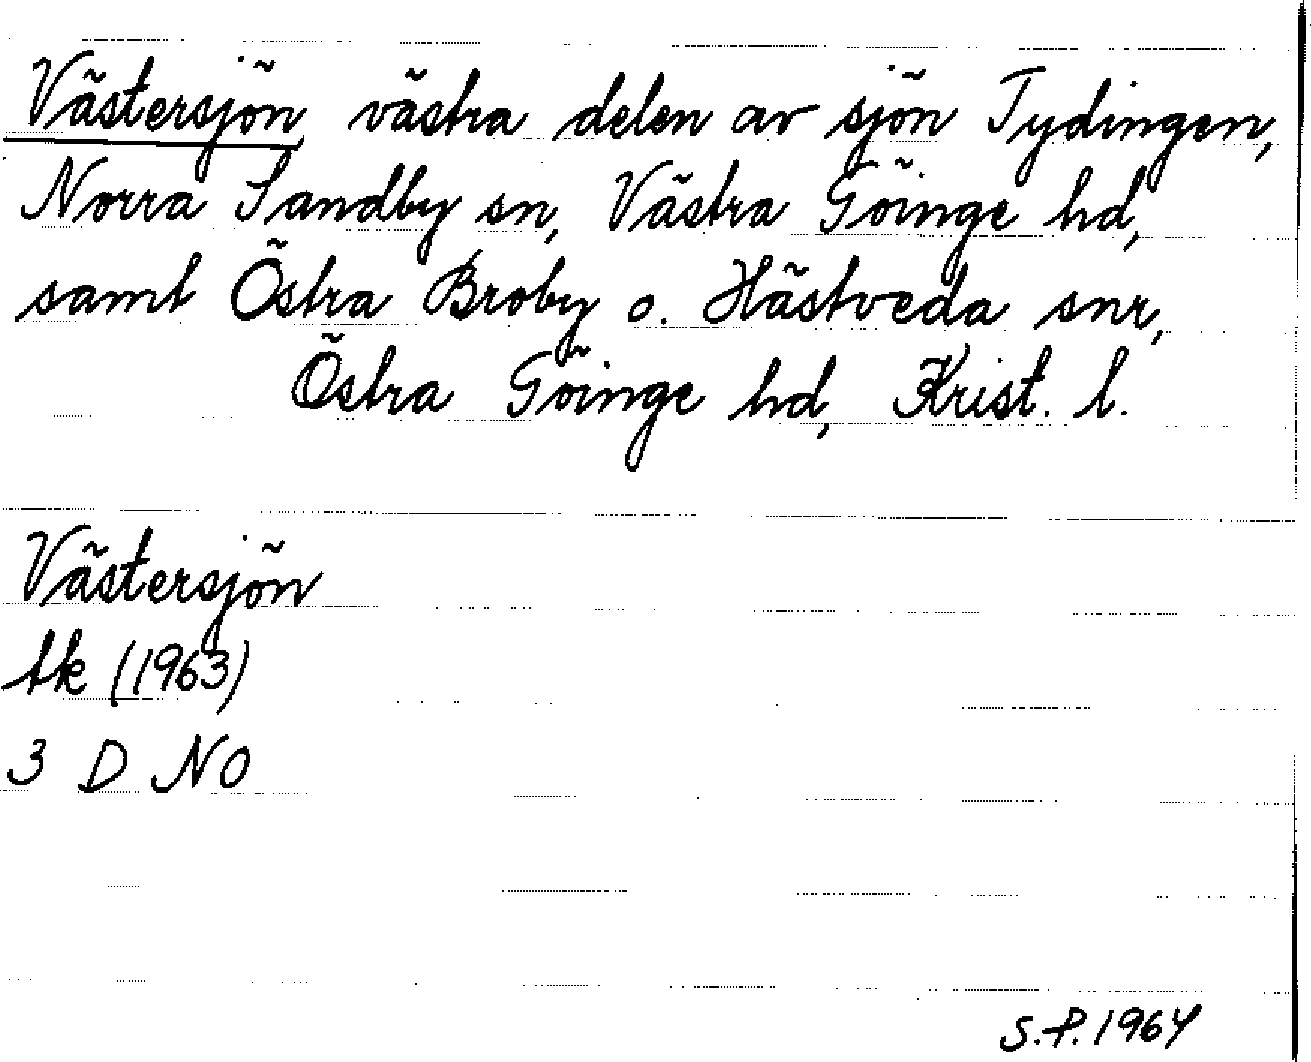 Västersjön västra delen av sjön Tydingen,
Norra Sandby sn, Västra Göinge hd,
samt Östra Broby o. Hästveda snr,
Östra Göinge hd, Krist. l.
Västersjön
tk (1963)
3 D NO
S.P. 1964